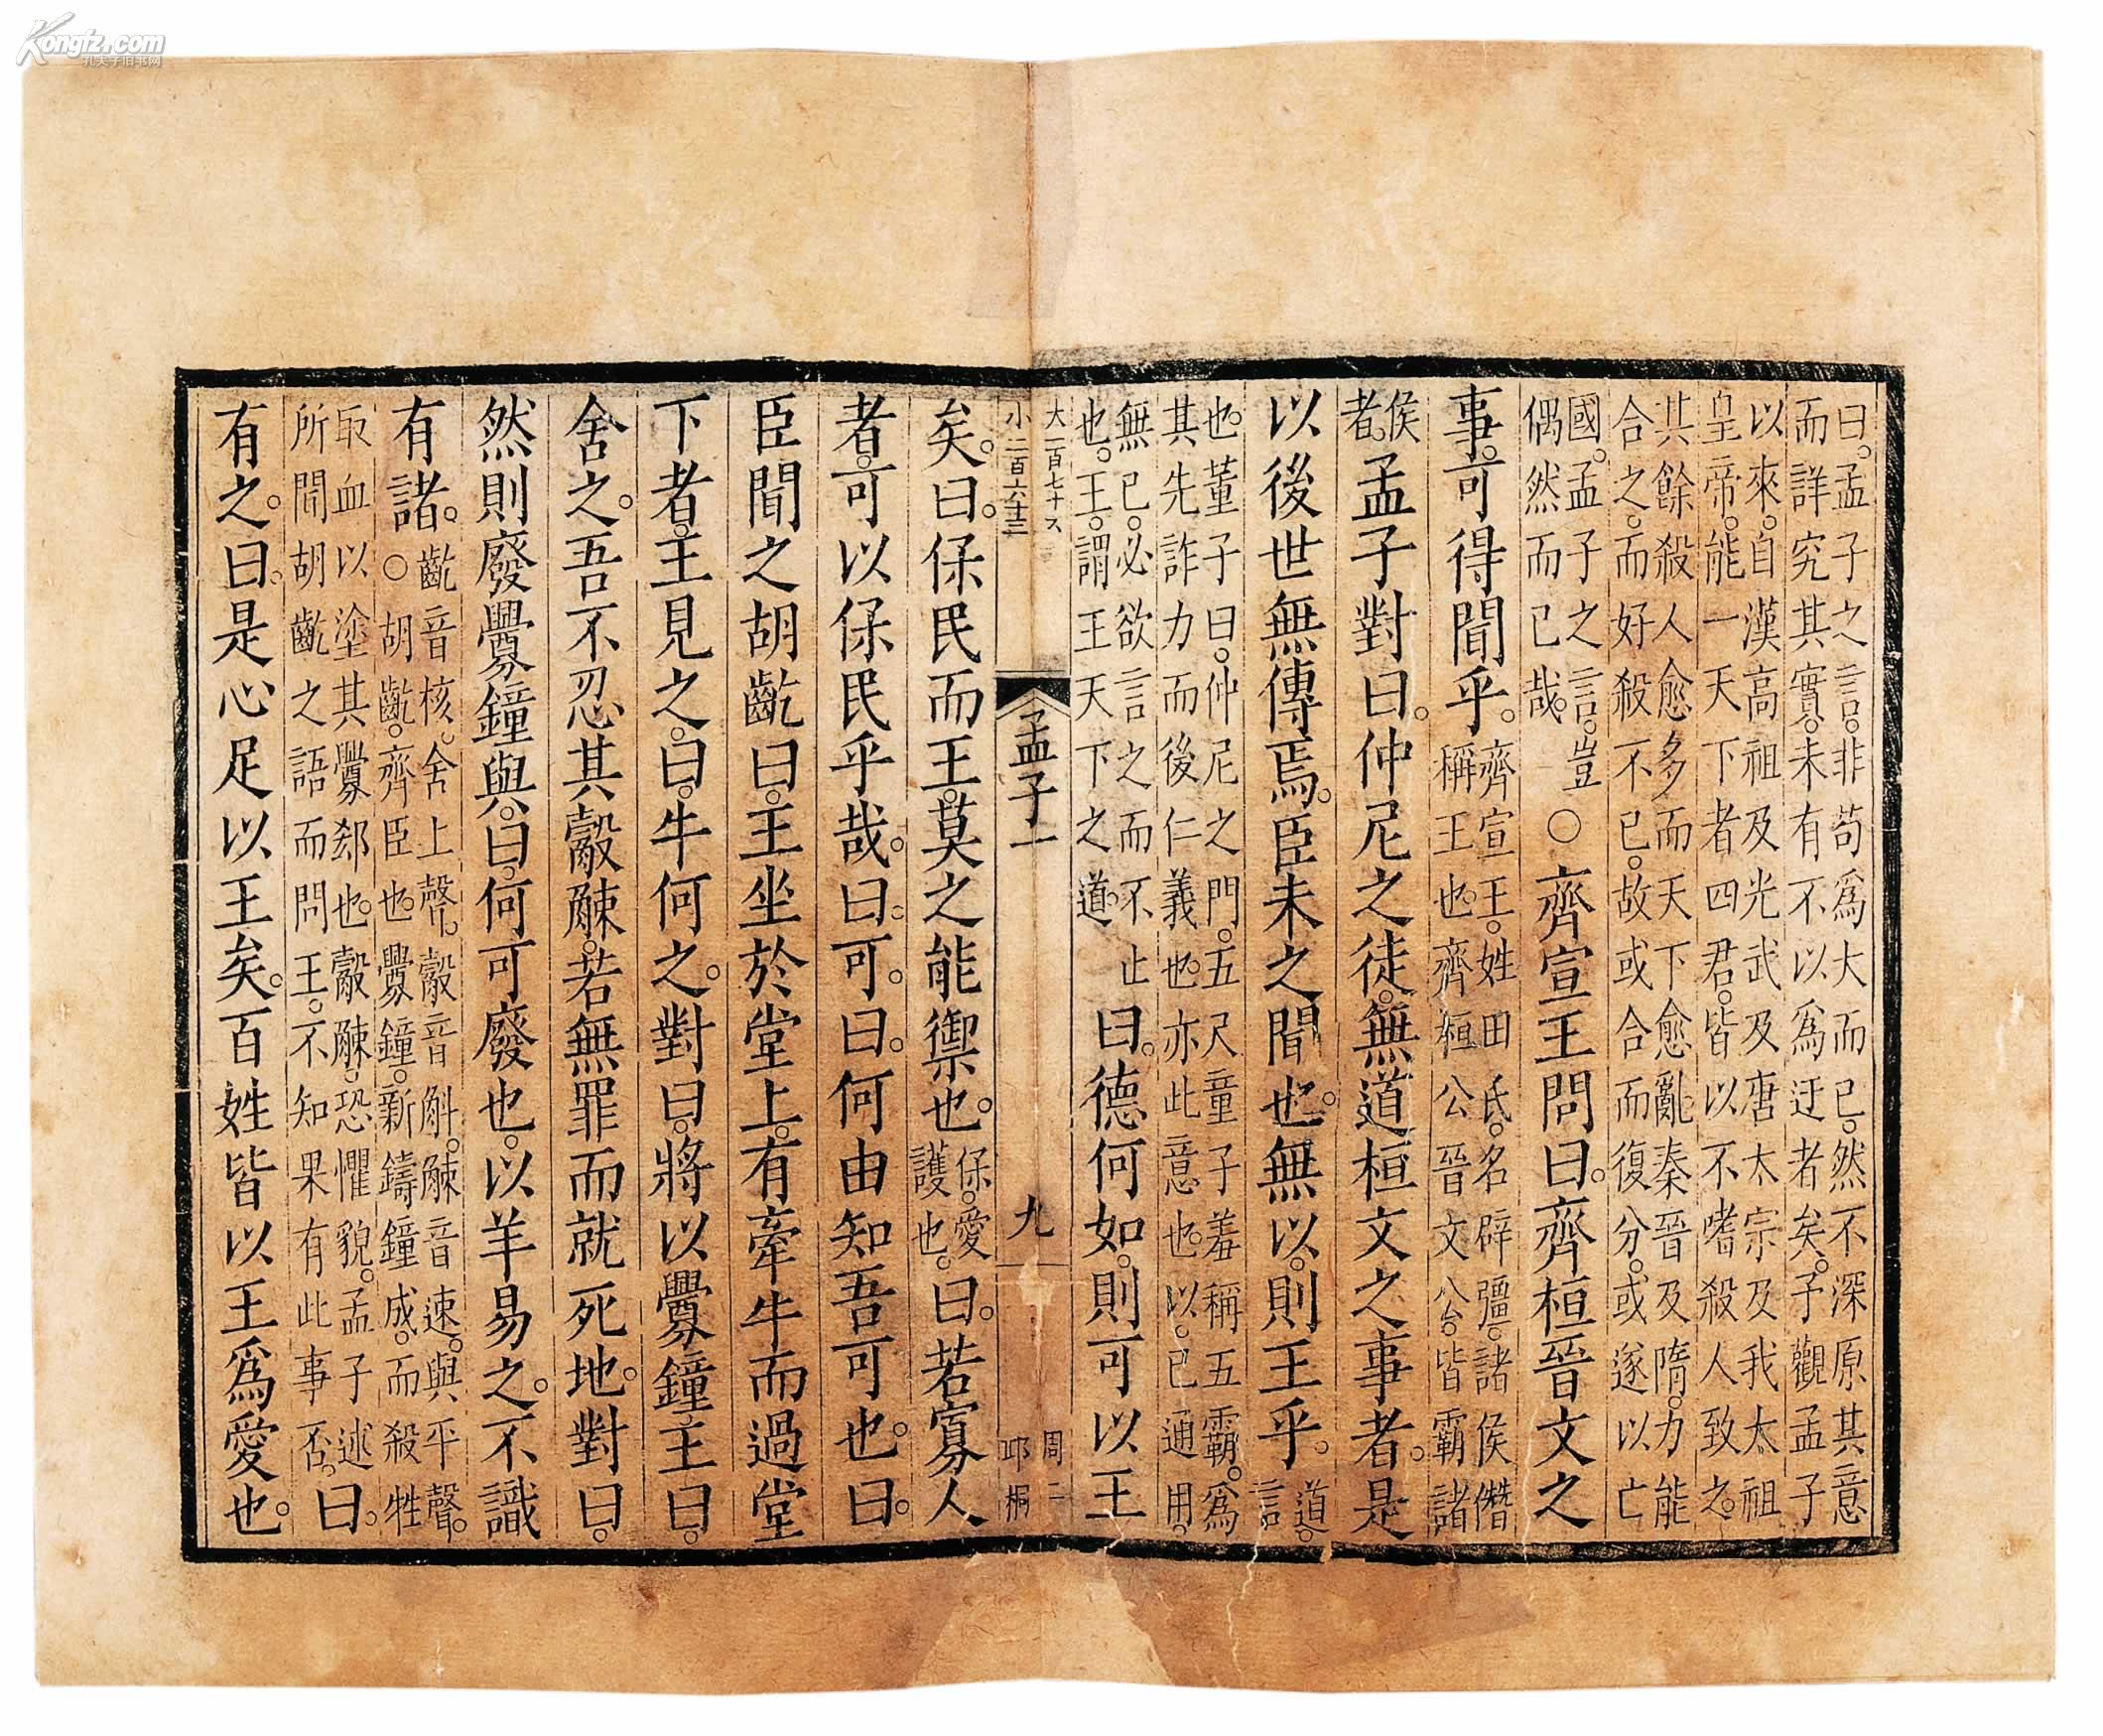 曰。孟子之言。非苟爲大而已。然不深原其意
而詳究其實。未有不以爲迂者矣。予觀孟子
以來。自漢高祖及光武及唐太宗及我太祖
皇帝。能一天下者四君。皆以不嗜殺人致之。
其餘殺人愈多而天下愈亂。秦晉及隋。力能
合之。而好殺不已。故或合而復分。或遂以亡
國。孟子之言。豈
偶然而已哉。
○齊宣王問曰。齊桓晉文之
事。可得聞乎。
齊宣王。姓田氏。名辟彊。諸侯僭
稱王也。齊桓公晉文公。皆霸諸
侯
者。
孟子對曰。仲尼之徒。無道桓文之事者。是
以後世無傳焉。臣未之聞也。無以。則王乎。
道。
言
也。董子曰。仲尼之門。五尺童子羞稱五霸。爲
其先詐力而後仁義也。亦此意也。以。已通用。
無已。必欲言之而不止
也。王。謂王天下之道。
曰。德何如。則可以王
大一百七十六
小二百六十三
孟子一
九
周二
邛桐
矣。曰。保民而王。莫之能禦也。
保。愛
護也。
曰。若寡人
者。可以保民乎哉。曰。可。曰。何由知吾可也。曰。
臣聞之胡齕曰。王坐於堂上。有牽牛而過堂
下者。王見之。曰。牛何之。對曰。將以釁鐘。王曰。
舍之。吾不忍其觳觫。若無罪而就死地。對曰。
然則廢釁鐘與。曰。何可廢也。以羊易之。不識
有諸。
齕音核。舍上聲。觳音斛。觫音速。與平聲。
○胡齕。齊臣也。釁鐘。新鑄鐘成。而殺牲
取血以塗其釁郄也。觳觫。恐懼貌。孟子述
所聞胡齕之語而問王。不知果有此事否。
曰。
有之。曰。是心足以王矣。百姓皆以王爲愛也。
Kongfz.com
孔夫子旧书网